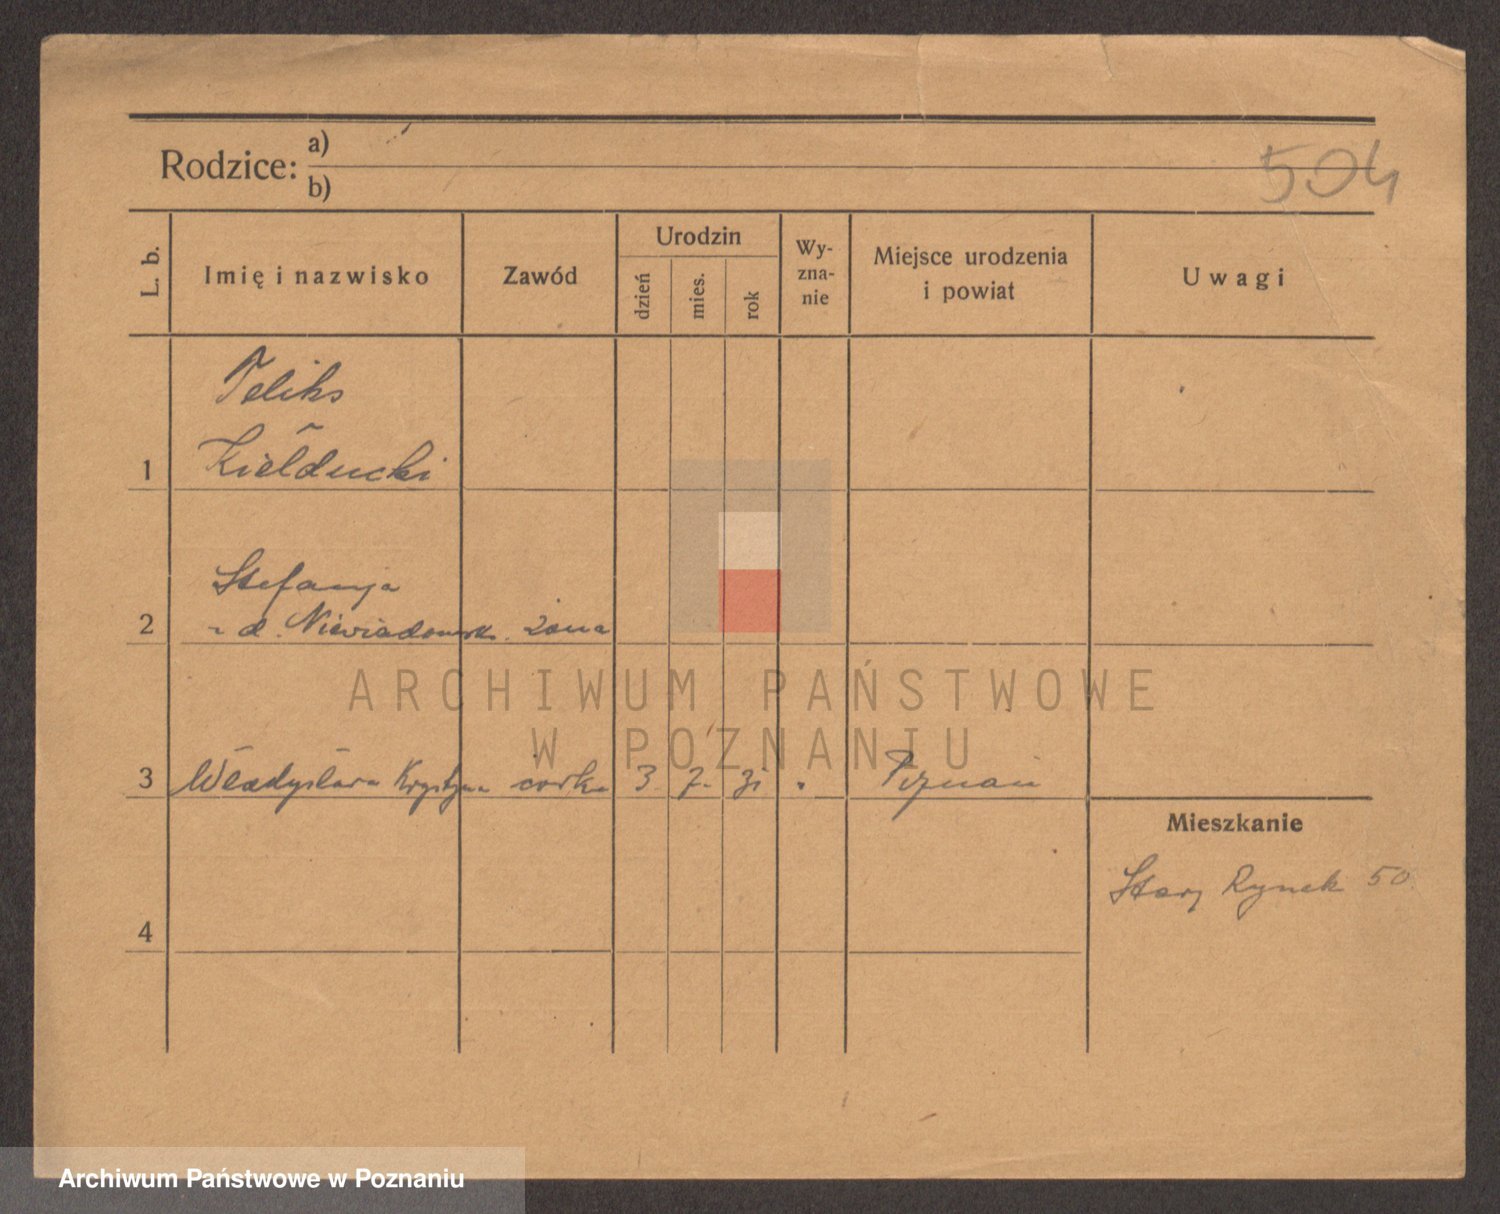 Rodzice: a)
b)
504
L. b.
Imię i nazwisko
Zawód
Urodzin
dzień
mies.
rok
Wy-
zna-
nie
Miejsce urodzenia
i powiat
Uwagi
Feliks
1 Kiełducki
Stefanja
2 z d. Niewiadomsk. żona
3 Władysława Krystyna córka 3. 7. 31 Poznań
Mieszkanie
Stary Rynek 50.
4
ARCHIWUM PAŃSTWOWE
W POZNANIU
Archiwum Państwowe w Poznaniu